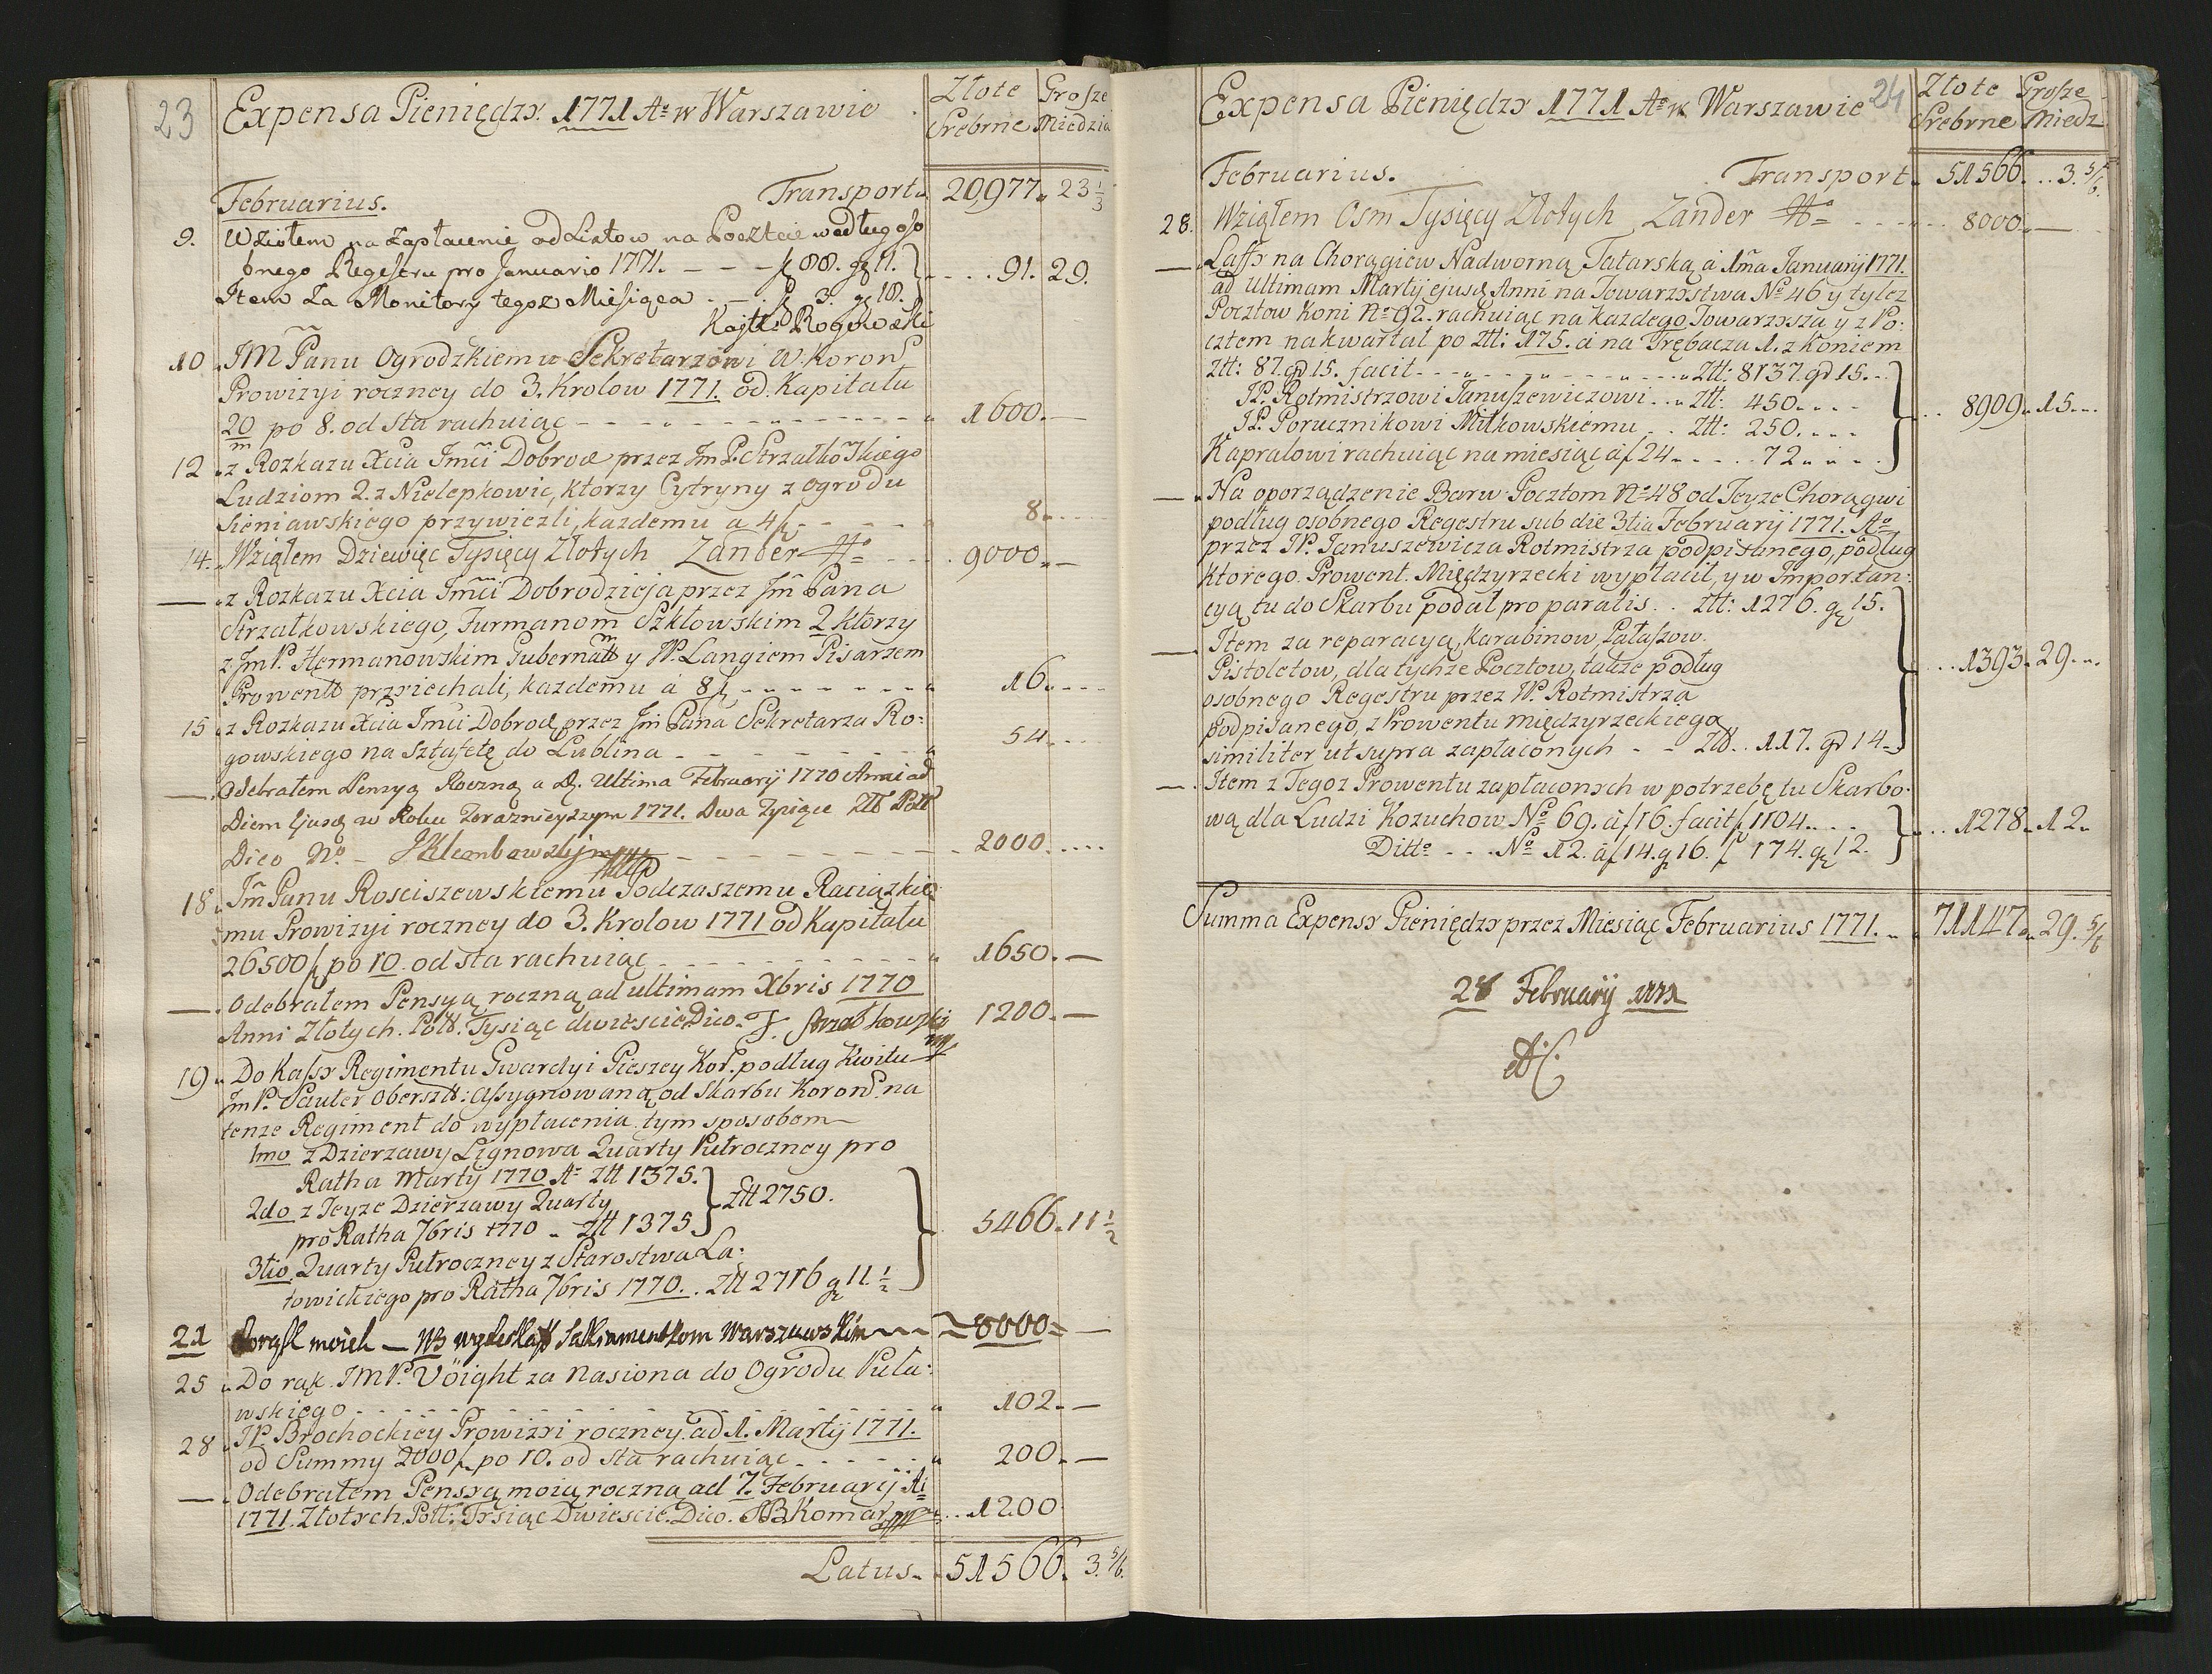 23 Expensa Pieniędzy. 1771 Aº w Warszawie
Złote Grosze
Srebrne Miedzia
Februarius. Transport. 20977. 23 1/3
9. Wziołem na zapłacenie od Listow na Poczcie według oso
bnego Regestru pro Januario 1771. - - - f 88. gr 11.
Item za Monitory tegoz Miesiąca - - - f 3. gr 18. } . . . . 91. 29.
Kajtt: Rogowski
10 JM Panu Ogrodzkiemu Sekretarzowi W. Koron
Prowizyi roczney do 3. Krolow 1771. od Kapitału
20/m po 8. od sta rachuiąc - - - - - 1600. —
12 z Rozkazu Xcia Jmci Dobrod przez Jm P. Strzałkowskiego
Ludziom 2. z Nielepkowic, ktorzy Cytryny z ogrodu
Sieniawskiego przywiezli, kazdemu a 4 f - - - - 8. - - -
14. Wziąłem Dziewięc Tysięcy Złotych Zander - - - 9000. —
— z Rozkazu Xcia Jmci Dobrodzieja przez Jm Pana
Strzałkowskiego, Furmanom Szkłowskim 2 ktorzy
z Jm P. Hermanowskim Gubernatt y JP. Langiem Pisarzem
Prowentt przyiechali, kazdemu á 8 f - - - - - 16. - - -
15 z Rozkazu Xcia Jmci Dobrod przez Jm Pana Sekretarza Ro:
gowskiego na sztafetę do Lublina - - - - - 54. - - -
— Odebrałem Pensyą Roczną a D. Ultima Februarij 1770 Anni ad
Diem Ejusd w Roku Teraznieyszym 1771. Dwa Tysiące Ztt Poll
Dico No. - - - - - - 2000. . . . .
18. Jm Panu Rosciszewskiemu Podczaszemu Raciązkie:
mu Prowizyi roczney do 3. Krolow 1771 od Kapitału
26500 f po 10. od sta rachuiąc - - - - - 1650. —
— Odebrałem Pensyą roczną ad ultimam Xbris 1770
Anni Złotych. Poll. Tysiąc dwiescie Dico. J. Strzałkowski 1200. —
19. Do Kassy Regimentu Gwardyi Pieszey Kor. podług Kwitu
Jm P. Sauter Obersztt: Assygnowaną od Skarbu Koron. na
tenze Regiment do wypłacenia tym sposobem
1mo z Dzierzawy Lignowa Quarty Pułroczney pro
Ratha Martij 1770 Aº Ztt 1375.
2do z Teyze Dzierzawy Quarty } Ztt 2750.
pro Ratha 7bris 1770 . Ztt 1375
3tio. Quarty Pułroczney z Starostwa La:
towickiego pro Ratha 7bris 1770. . Ztt 2716 gr 11 1/2 } 5466. 11 1/2
21 moich — Sakramentkom Warszawskim — 8000 —
25 Do rąk JMP. Vöight za Nasiona do Ogrodu Puła:
wskiego - - - - - - 102. —
28 JP. Brochockiey Prowizyi roczney ad 1. Martij 1771.
od Summy 2000 f po 10. od sta rachuiąc - - - - - 200. —
— Odebrałem Pensyą moią roczną ad 7. Februarij Ai
1771. Złotych. Poll: Tysiąc Dwiescie. Dico. JB Komar . . 1200
Latus. 51566. 3. 5/6.
Expensa Pieniędzy 1771 Aº w Warszawie 24
Złote Grosze
Srebrne Miedz
Februarius. Transport. 51566. . . 3. 5/6.
28. Wziąłem Osm Tysięcy Złotych Zander - - - 8000. —
— Kassy na Chorągiew Nadworną Tatarską á 1ma Januarij 1771.
ad ultimam Martij ejusd Anni na Towarzystwa Nº 46 y tylez
Pocztow Koni Nº 92. rachuiąc na kazdego Towarzysza y z Po:
cztem na kwartał po Ztt: 175. á na Trębacza 1. z Koniem
Ztt: 87. gr 15. facit - - - - - Ztt: 8137. gr 15. . .
JP. Rotmistrzowi Januszewiczowi . . Ztt: 450. . . .
JP. Porucznikowi Mitkowskiemu . . Ztt: 250. . . .
Kapralowi rachuiąc na miesiąc á f 24 - - - - 72. . . . } . . 8909. 15. . .
— Na oporządzenie Barw Pocztom Nº 48 od Teyze Chorągwi
podług osobnego Regestru sub die 3tia Februarij 1771. Aº
przez JP. Januszewicza Rotmistrza podpisanego, podług
ktorego Prowent. Międzyrzecki wypłacił, y w Importan:
cyą tu do Skarbu podał pro paratis. . Ztt: 1276. gr 15.
— Item za reparacyą, Karabinow, Pałaszow.
Pistoletow, dla tychze Pocztow, takze podług
osobnego Regestru przez JP. Rotmistrza
podpisanego, z Prowentu międzyrzeckiego
similiter ut supra zapłaconych - - Ztt. . 117. gr 14. } . . . 1393. 29. . .
— Item z Tegoz Prowentu zapłaconych w potrzebę tu Skarbo.
wą dla Ludzi Kozuchow Nº 69. á f 16. facit f 1104. . . .
Ditto - - - Nº 12. á f 14. gr 16. f 174. gr 12. } . . . 1278. 12.
Summa Expensy Pieniędzy przez Miesiąc Februarius 1771. . 71147. 29. 5/6
28 February 1771